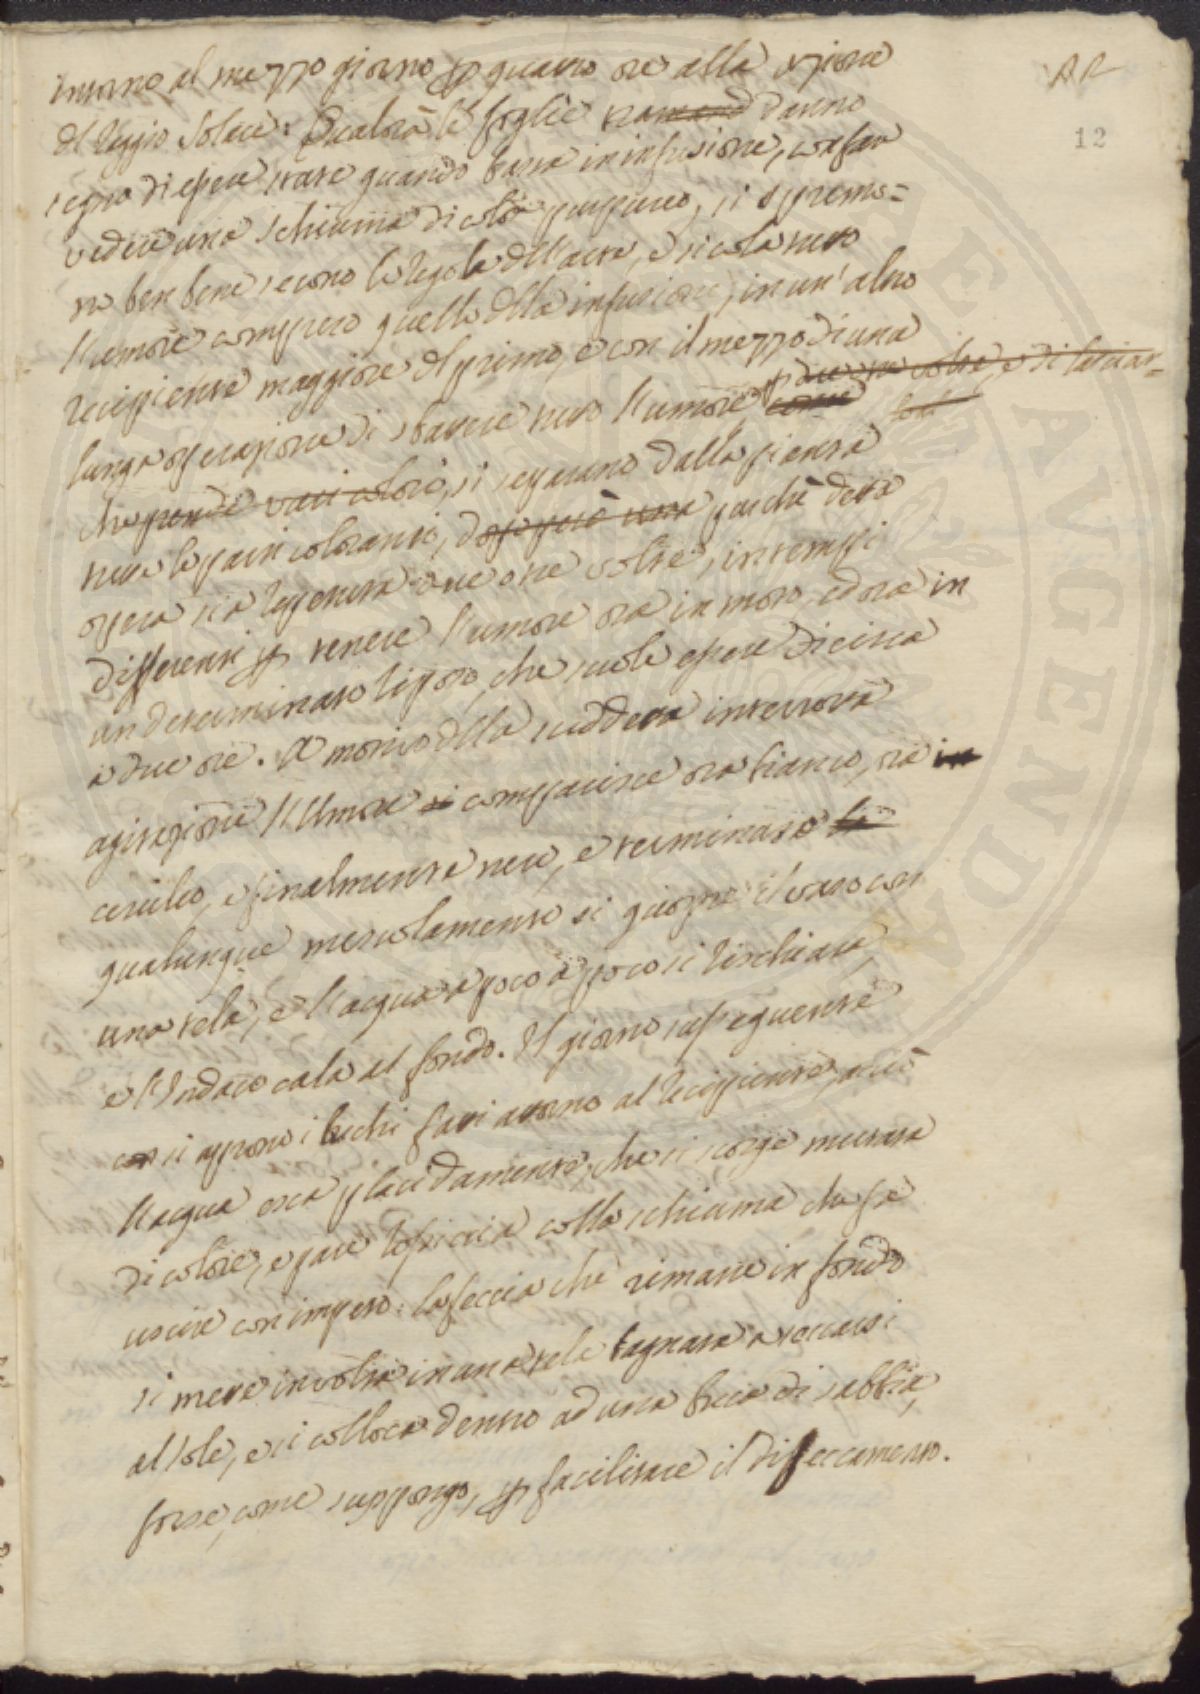 AR
12
intorno al mezzo giorno p quatro ore alla azione
del Raggio Solare: Qualora le foglie danno
segno di essere state quando basta in infusione, con far
vedere una schiuma di color purpureo, si spremo=
no ben bene secono la regola dell'arte, e si cola tutto
l'umore compreso quello della infusione, in un'altro
recipiente maggiore del primo, e con il mezzo di una
p due o tre volte, e di lasciar=
lunga operazione di sbattere tutto l'umore come
che prende varj colori, si separano dalla pianta
tutte le parti coloranti, dopo però una poichè detta
opera sia repetuta due o tre volte, in tempi
differenti p tenere l'umore ora in moto, ed ora in
un determinato riposo, che suole essere di circa
a due ore. A motivo della suddetta interrotta
agitazione l'Umore si comparisce ora bianco, ora in
ceruleo, e finalmente nero, e terminato il
qualunque mescolamento si giogne il vaso con
una tela, e l'acqua a poco a poco si rischiara,
e l'Indaco cala al fondo. Il giorno susseguente
si aprono i buchi fatti attorno al recipiente, acciò
l'acqua esca placidamente, che si scorge mutata
di colore, e pare colla schiuma che fa
uscire con impeto: la feccia che rimane in fondo
si mette involta in una tela bagnata a seccarsi
al Sole, e si colloca dentro ad una buca di sabbia,
forse, come suppongo, p facilitare il disseccamento.